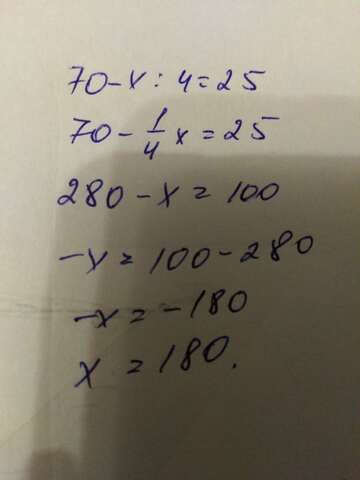 70-x:4=25
70-1/4x=25
280-x=100
-x=100-280
-x=-180
x=180.